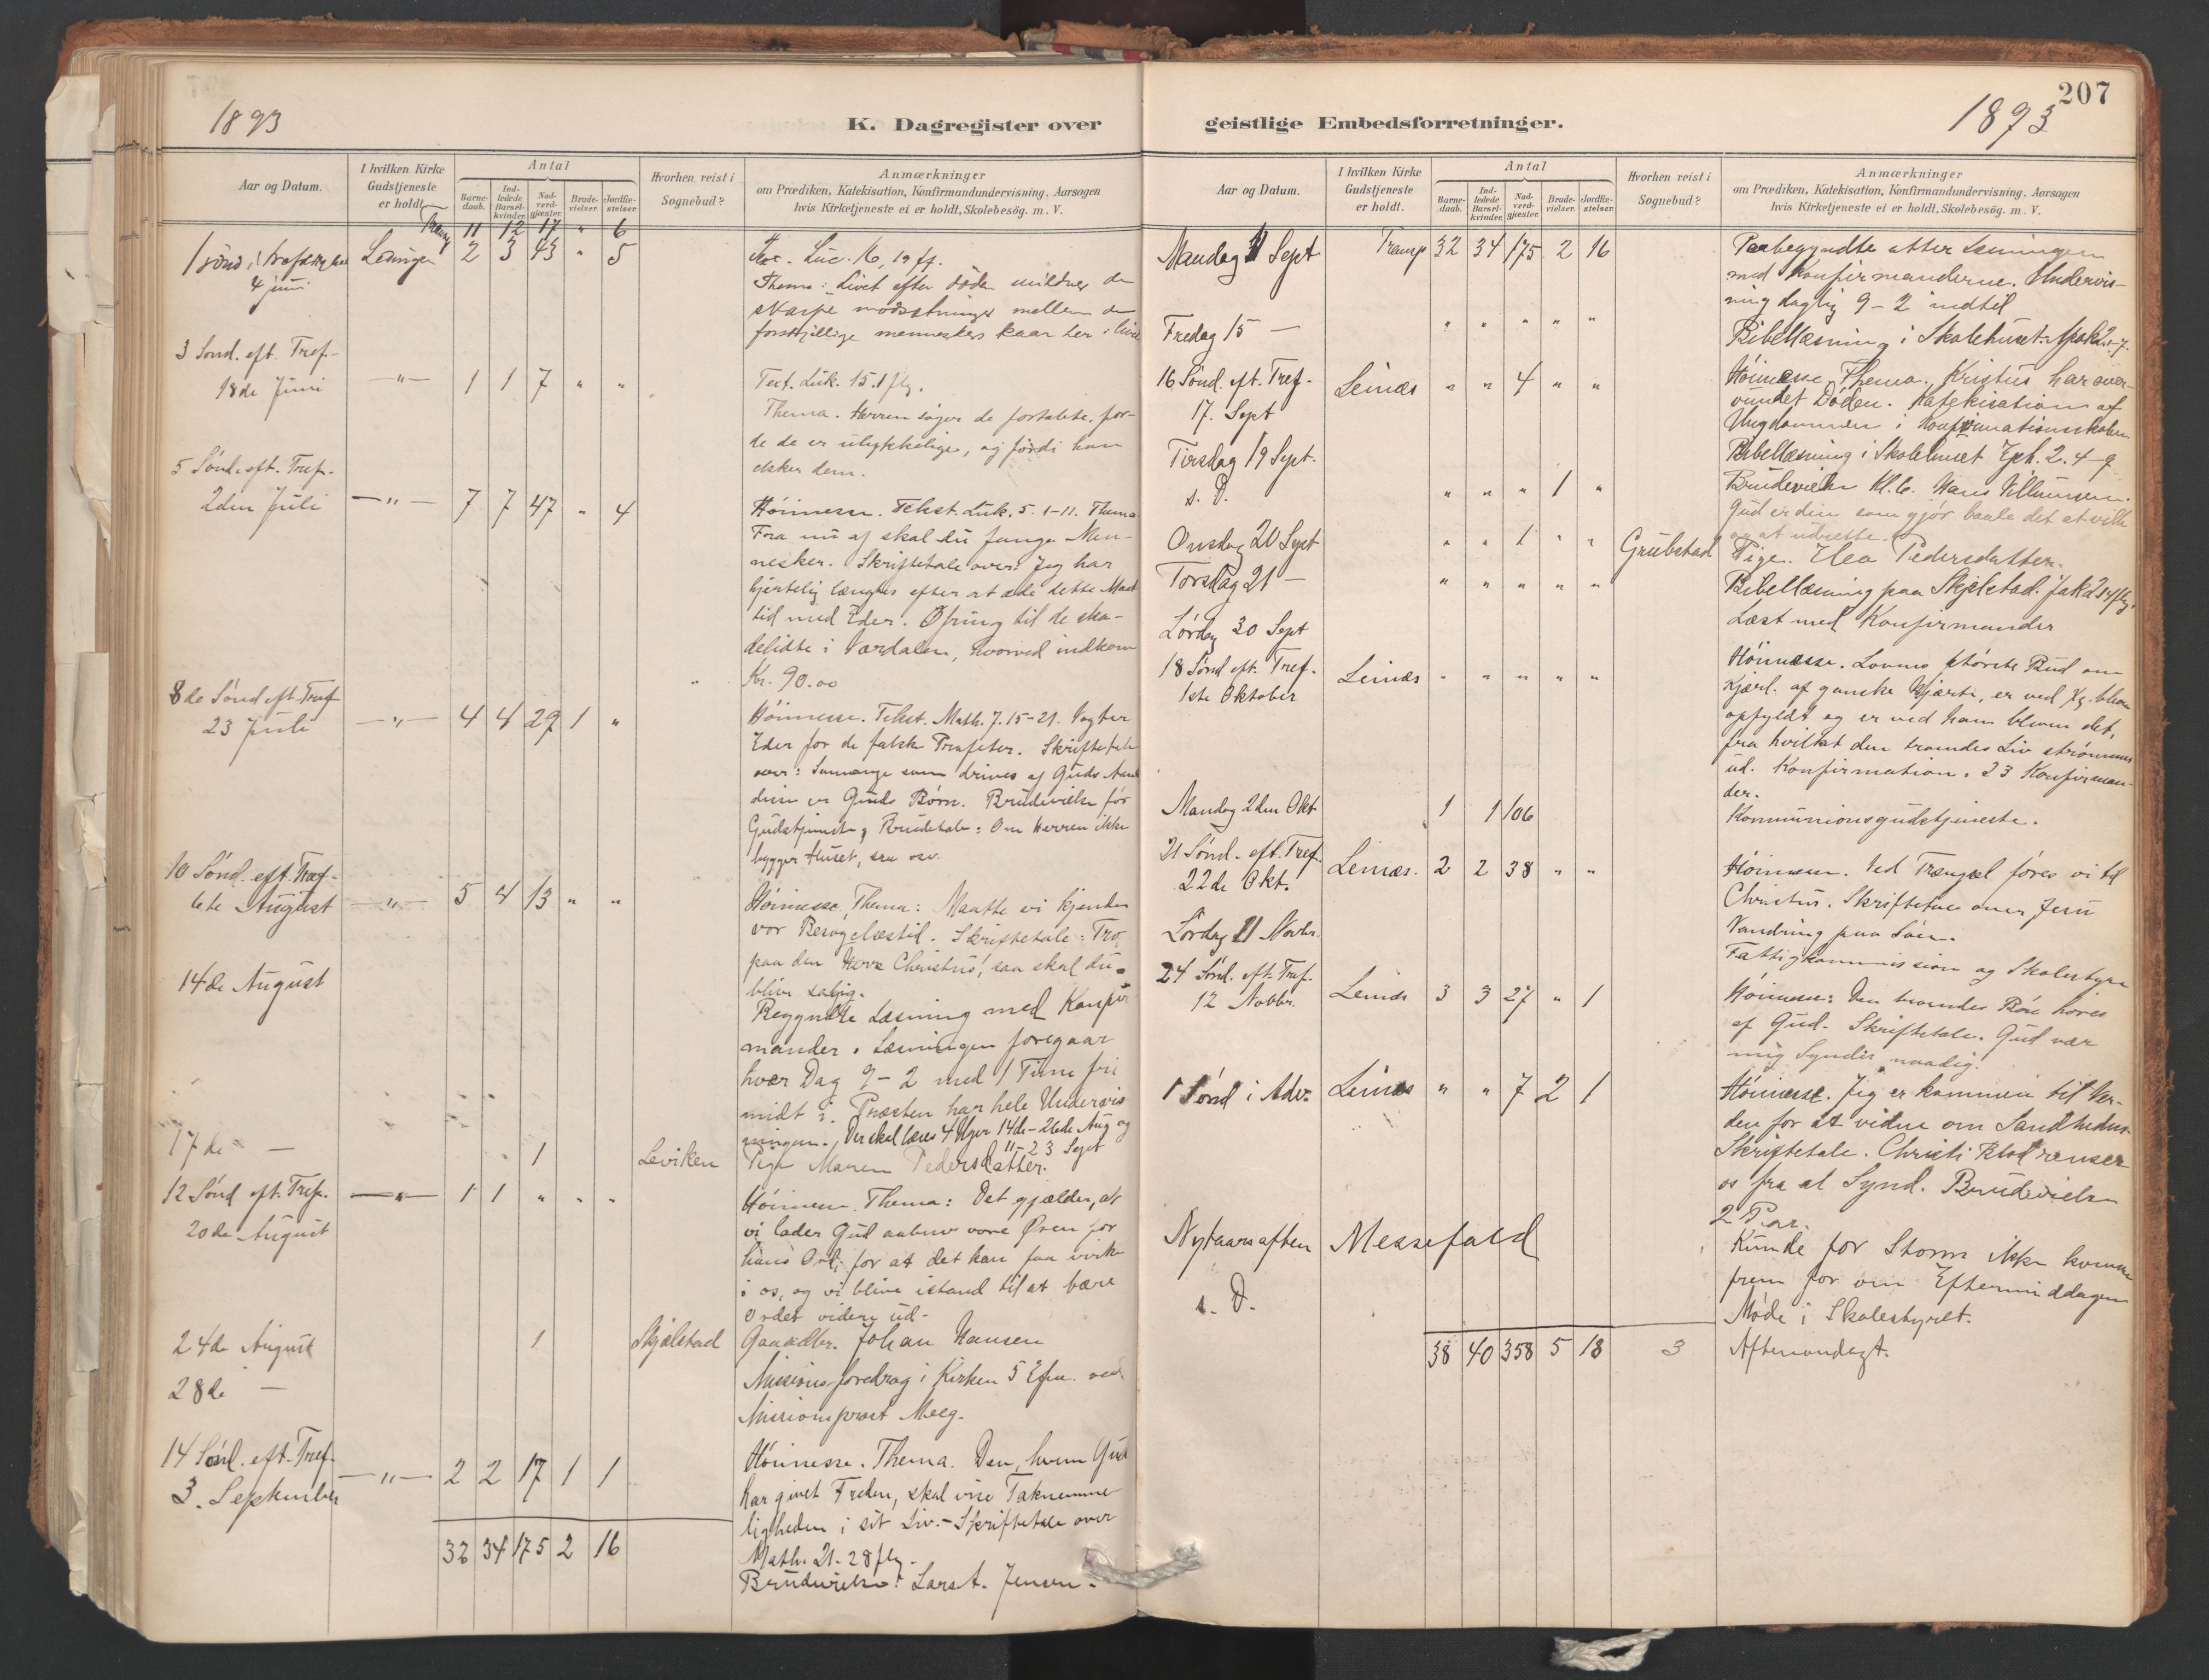 207
1893
1893
K. Dagregister over
geistlige Embedsforretninger.
Aar og Datum.
I hvilken Kirke Gudstjeneste er holdt.
Antal
Barne-daab.
Ind-ledede Barsel-kvinder.
Nad-verd-gjæster.
Brude-vielser.
Jordfæ-stelser.
Hvorhen reist i Sognebud?
Anmærkninger
om Prædiken, Katekisation, Konfirmandundervisning. Aarsagen
hvis Kirketjeneste ei er holdt, Skolebesög. m. V.
Transp 11 12 17 " 6
1 sønd i
4 juni
Ledingen 2 3 43 " 5
Luc. 16, 19 ff.
Thema: Livet efter døden de
skarpe mellem de
forskjellige menneskers kaar her i livet
3 Sønd. eft. Tref.
18de Juni
—"— 1 1 7 " "
Text. Luk. 15. 1 flg.
Thema. Herren søger de fortabte, for-
de de er ulykkelige, og fordi han
elsker dem.
5 Sønd. eft. Tref.
2den Juli
—"— 7 7 47 " 4
Høimesse. Tekst. Luk. 5. 1-11. Thema
Fra nu af skal du fange Men-
nesker. Skriftetale over: Jeg har
hjertelig længtes efter at æde dette Maal
tid med Eder. Ofring til de ska-
delidte i Værdalen, hvorved indkom
Kr. 90.00
8de Sønd eft. Tref
23 Juli
—"— 4 4 29 1 "
Høimesse. Tekst. Math. 7. 15-21. Vogter
Eder for de falske Profeter. Skriftetale
over: Saamange som drives af Guds Aand
disse er Guds Børn. Brudevielse før
Gudstjeneste, Brudetale: Om Herren ikke
bygger Huset, osv.
10 Sønd. eft. Tref.
6te August
—"— 5 4 13 " "
Høimesse, Thema: Maatte vi kjende
vor Besøgelsestid. Skriftetale: Tro
paa den Herre Christus, saa skal du
blive salig.
14de August
Begyndte Læsning med Konfir
mander. Læsningen foregaar
hver Dag 9-2 med 1 Time fri
midt i. Præsten har hele Undervis
ningen. Der skal læses 4 Uger 14de-26de Aug og
11-23 Sept
17de —
1 Leviken
Pige Maren Pedersdatter.
12 Sønd eft. Tref.
20de August
—"— 1 1 " " "
Høimesse. Thema: Det gjælder, at
vi lader Gud aabne vore Øren for
hans Ord, for at det kan faa virke
i os, og vi blive istand til at bære
Ordet videre ud.
24de August
1 Skjælstad
Gaardbr. Johan Hansen
28de —
Missionsforedrag i Kirken 5 Efm. ved
Missionsprest Meeg.
14 Sønd. eft. Tref.
3. September
—"— 2 2 17 1 1
Høimesse. Thema. Den, hvem Gud
har givet Freden, skal vise Taknemme-
ligheden i sit Liv. - Skriftetale over
Math. 21. 28 flg.
Brudevielse: Lars A. Jensen.
32 34 175 2 16
Aar og Datum.
I hvilken Kirke Gudstjeneste er holdt.
Antal
Barne-daab.
Ind-ledede Barsel-kvinder.
Nad-verd-gjæster.
Brude-vielser.
Jordfæ-stelser.
Hvorhen reist i Sognebud?
Anmærkninger
om Prædiken, Katekisation, Konfirmandundervisning. Aarsagen
hvis Kirketjeneste ei er holdt, Skolebesög. m. V.
Mandag 11 Sept
Transp 32 34 175 2 16
Paabegyndte atter Læsningen
med Konfirmanderne. Undervis-
ning daglig 9-2 indtil
Fredag 15 —
" " " " "
Bibellæsning i Skolehuset.
16 Sønd. eft. Tref.
17. Sept
Leinæs " " 4 " "
Høimesse. Thema. Kristus har over-
vundet Døden. Katekisation af
Ungdommen i
Tirsdag 19 Sept.
Bibellæsning i Skolehuset Eph. 2. 4-9
s. D.
" " " 1 "
Brudevielse Kl. 6. Hans
Gud er den som gjør baade det at ville
og at udrette.
Onsdag 20 Sept
" " 1 " " Grubstad
Pige. Pedersdatter.
Torsdag 21 —
" " " " "
Bibellæsning paa Skjelstad. Jak 2. 14 flg.
Lørdag 30 Sept
Læst med Konfirmander
18 Sønd eft. Tref.
1ste Oktober
Leinæs " " " " "
Høimesse. Lovens største Bud om
Kjærl. af ganske Hjærte, er ved bleven
opfyldt og er ved ham bleven det,
fra hvilket den troendes Liv strømmer
ud. Konfirmation. 23 Konfirman-
der.
Mandag 2den Okt
1 1 106
Kommunionsgudstjeneste.
21 Sønd. eft. Tref.
22de Okt.
Leinæs. 2 2 38 " "
Høimesse. Ved Trængsel føres vi til
Christus. Skriftetale over Jesu
Vandring paa Søen.
Lørdag 11 Novbr.
Fattigkommission og Skolestyre
24 Sønd. eft. Tref.
12 Novbr.
Leinæs 3 3 27 " 1
Høimesse: Den troendes Bøn høres
af Gud. Skriftetale. Gud vær
mig Synder naadig.
1 Sønd i Adv.
Leinæs " " 7 2 1
Høimesse. Jeg er kommen til Ver-
den for at vidne om Sandheden.
Skriftetale. Christi Blod renser
os fra al Synd. Brudevielse
2 Par.
Nytaarsaften
Messefald
Kunde for Storm ikke komme
frem før om Eftermiddagen
s. D.
Møde i Skolestyret.
38 40 358 5 18 3
Afternondagt.